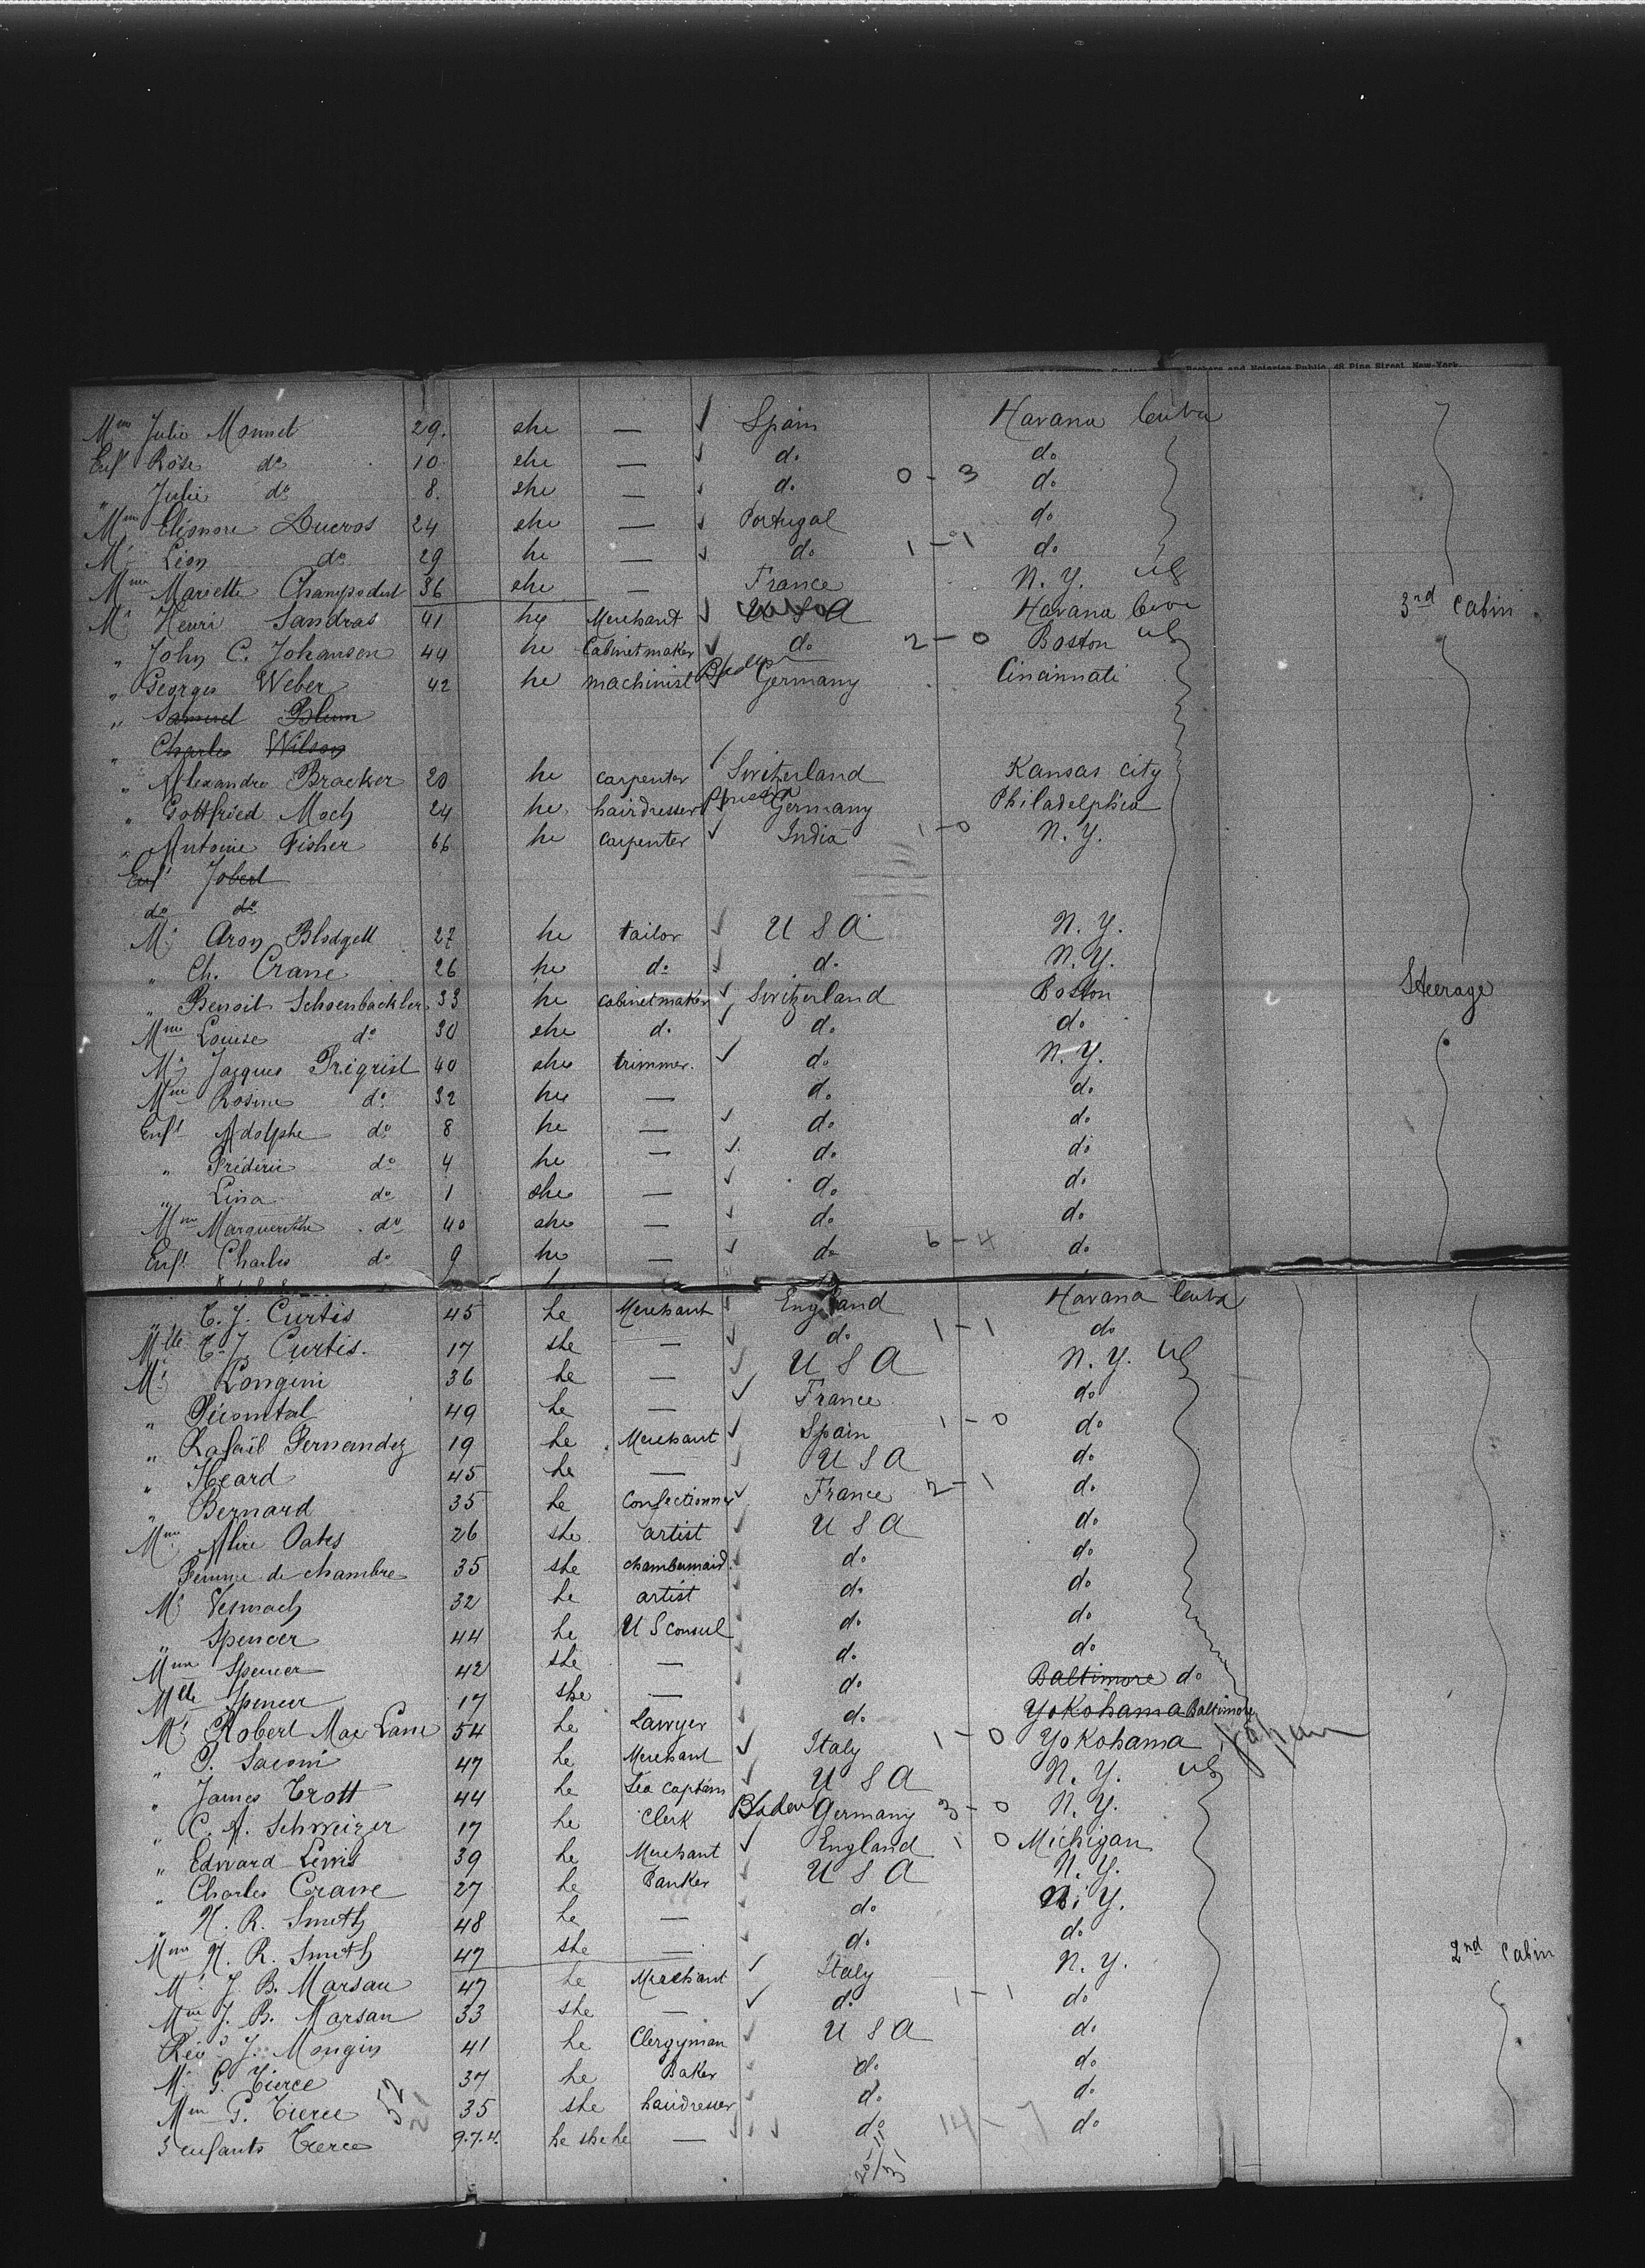 Brokers and Notaries Public, 48 Pine Street, New-York.
Mme Julie Monnet 29. she — ✓ Spain Havana Cuba
Enft Rose do 10 she — ✓ do do
" Julie do 8. she — ✓ do 0-3 do
Mme Eléonore Ducros 24 she — ✓ Portugal do
Mr Léon do 29 he — ✓ do 1-1 do
Mme Mariette Champodut 36 she — France N.Y. US
Mr Henri Sandras 41 he Merchant ✓ U S A Havana 3rd Cabin
" John C. Johansen 44 he Cabinetmaker ✓ do 2-0 Boston US
" Georges Weber 42 he machinist ✓ Germany Cincinnati
" Samuel Blum
" Charles Wilson
" Alexandre Bracker 20 he carpenter ✓ Switzerland Kansas City
" Gottfried Moch 24 he hairdresser Prussia Germany Philadelphia
" Antoine Fisher 66 he carpenter ✓ India 1-0 N.Y.
Enft Jobert
do do
Mr Aron Blodgett 27 he tailor ✓ U S A N.Y.
" Ch. Crane 26 he do ✓ do N.Y.
" Benoit Schoenbachler 33 he cabinetmaker ✓ Switzerland Boston Steerage
Mme Louise do 30 she do ✓ do do
Mr Jacques Frigrist 40 she trimmer. ✓ do N.Y.
Mme Rosine do 32 he — do do
Enft Adolphe do 8 he — ✓ do do
" Fréderic do 4 he — ✓ do do
" Lina do 1 she — ✓ do do
Mme Marguerithe do 40 she — ✓ do do
Enft Charles do 9 he — ✓ do 6-4 do
" C. J. Curtis 45 he Merchant ✓ England Havana Cuba
Mlle C. J. Curtis. 17 she — ✓ do 1-1 do
Mr Longini 36 he — ✓ U S A N.Y. US
" Picontal 49 he — ✓ France do
" Rafaël Fernandez 19 he Merchant ✓ Spain 1-0 do
" Heard 45 he — ✓ U S A do
" Bernard 35 he Confectionner ✓ France 2-1 do
Mme Alice Oates 26 she artist ✓ U S A do
Femme de chambre 35 she chambermaid ✓ do do
Mr 32 he artist ✓ do do
" Spencer 44 he U S Consul ✓ do do
Mme Spencer 42 she — ✓ do do
Mlle Spencer 17 she — ✓ do Baltimore do
Mr Robert Mac Lane 54 he Lawyer ✓ do Yokohama Baltimore
" P. Saconi 47 he Merchant ✓ Italy 1-0 Yokohama Japan
" James Trott 44 he Sea captain ✓ U S A N.Y. US
" C. A. Schweizer 17 he Clerk Baden Germany 3-0 N.Y.
" Edward Lewis 39 he Merchant ✓ England 1 0 Michigan
" Charles Crane 27 he Banker ✓ U S A N.Y.
" H. R. Smith 48 he — ✓ do N.Y.
Mme H. R. Smith 47 she — ✓ do do
Mr J. B. Marsan 47 he Merchant ✓ Italy N.Y. 2nd Cabin
Mme J. B. Marsan 33 she — ✓ do 1-1 do
Revd J. Mongin 41 he Clergyman ✓ U S A do
Mr G. Tierce 37 he Baker ✓ do do
Mme G. Tierce 52 21 35 she hairdresser ✓ do do
3 enfants Tierce 9.7.4. he she he — ✓ ✓ ✓ do 14-7 do